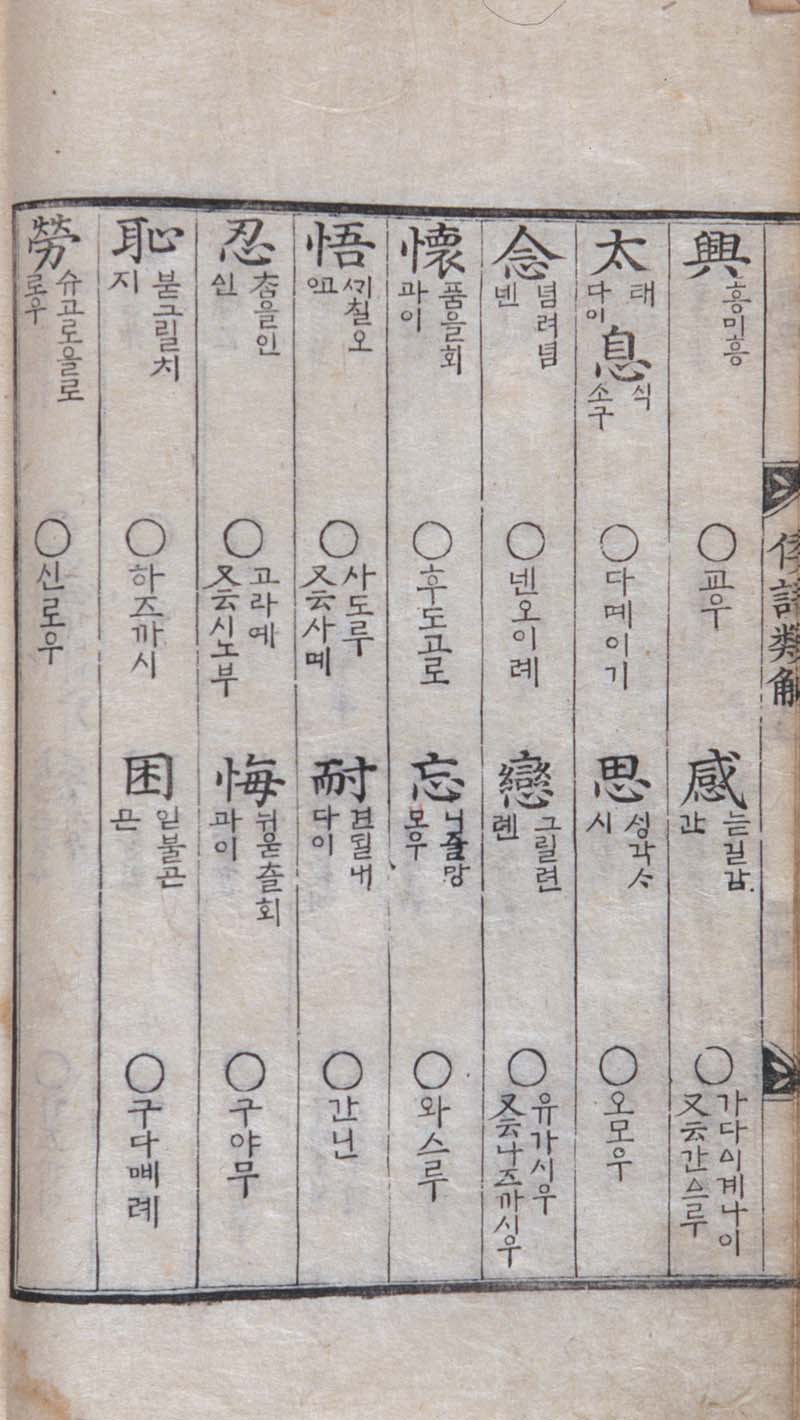 倭語類解
興 흥미흥 ○ 교우 感 늗길감 간 ○ 가다ᅀᅵ계나이 又云간ᅀᅳ루
太 태 다이 息 식 소구 ○ 다몌이기 思 ᄉᆡᆼ각ᄉᆞ 시 ○ 오모우
念 념려념 녠 ○ 녠오이례 戀 그릴련 롄 ○ 유가시우 又云나즈까시우
懷 품을회 과이 ○ 후도고로 忘 니즐망 모우 ○ 와스루
悟 ᄭᆡ칠오 ᅌᅩ ○ 사도루 又云사몌 耐 견딜내 다이 ○ 간닌
忍 ᄎᆞᆷ을인 신 ○ 고라예 又云시노부 悔 뉘욷츨회 과이 ○ 구야무
恥 붇그릴치 지 ○ 하즈까시 困 읻블곤 곤 ○ 구다ᄲᅨ례
勞 슈고로올로 로우 ○ 신로우